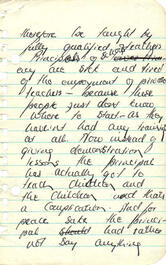 therefore be taught by
fully qualified teachers
Principals of schools
any are sick and tired
of the employment of
teachers - because these
people just dont know
where to start - as they
havent had any training
at all. Now instead of
giving demonstration
lessons the principal
has actually got to
teach children and
the children and thats
a complication. And for
peace sake the princi-
pal should had rather
not say anything